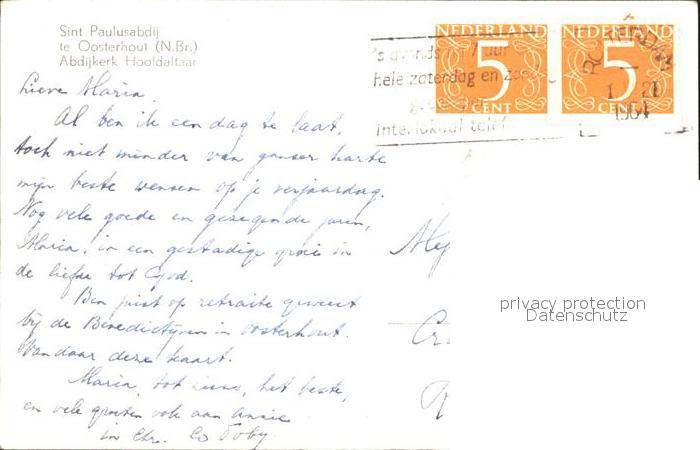 Sint Paulusabdij
te Oosterhout (N.Br.)
Abdijkerk Hoofdaltaar
NEDERLAND NEDERLAND
5 5
CENT CENT
's avonds 7 uur
hele zaterdag en
interlokaal telef
ROTTERDAM
1964
Lieve Maria,
Al ben ik een dag te laat,
toch niet minder van ganser harte
mijn beste wensen op je verjaardag.
Nog vele goede en gezegende jaren,
Maria, in een gestadige groei in
de liefde tot God.
Ben juist op retraite geweest
bij de Benedictijnen in Oosterhout.
Vandaar deze kaart.
Maria, tot ziens, het beste,
en vele groeten ook aan Annie
in Chr. Co Toby
privacy protection
Datenschutz